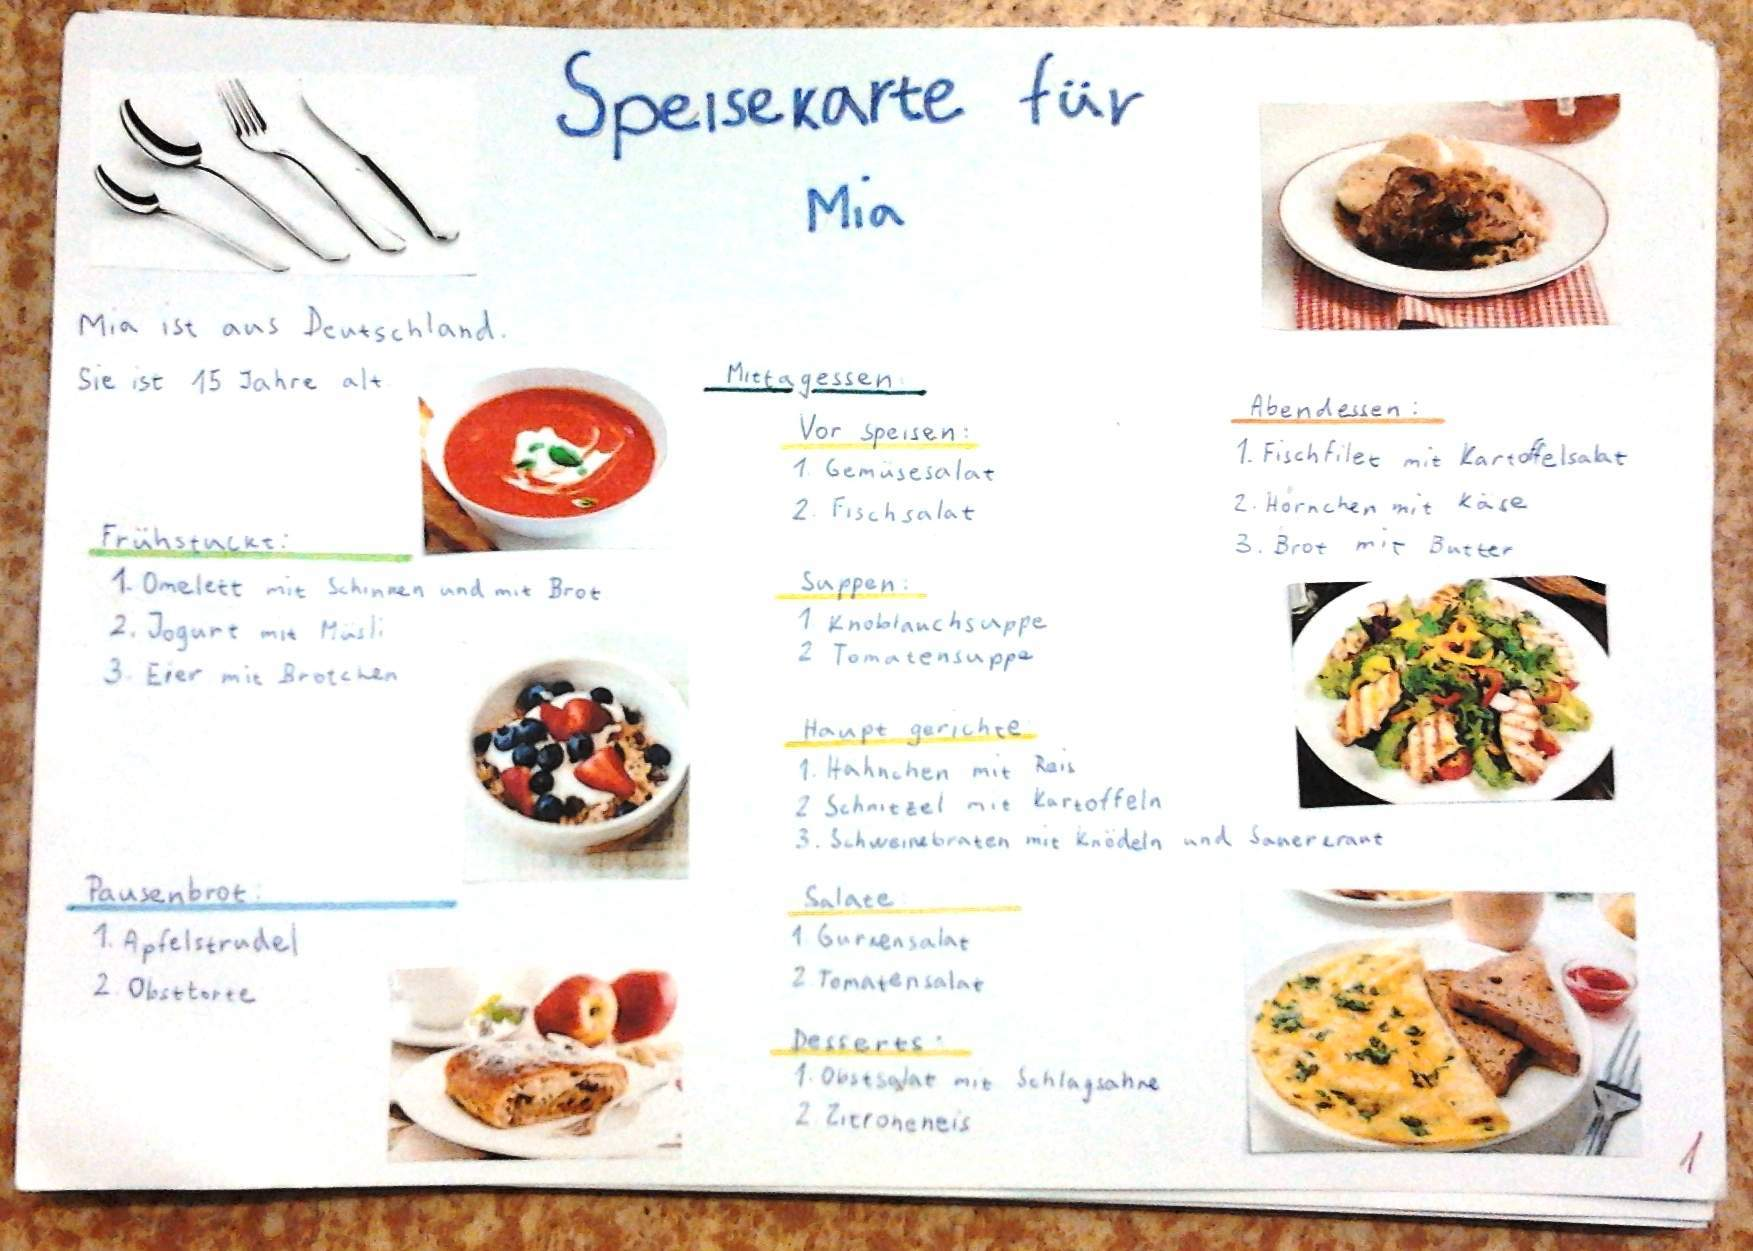 Speisekarte für
Mia
Mia ist aus Deutschland.
Sie ist 15 Jahre alt
Frühstuckt:
1. Omelett mit Schinken und mit Brot
2. Jogurt mit Müsli
3. Eier mit Brotchen
Pausenbrot:
1. Apfelstrudel
2. Obsttorte
Mittagessen:
Vor speisen:
1. Gemüsesalat
2. Fischsalat
Suppen:
1 Knoblauchsuppe
2 Tomatensuppe
Haupt gerichte
1. Hahnchen mit Reis
2 Schnitzel mit Kartoffeln
3. Schweinebraten mit Knödeln und Sauerkraut
Salate
1 Gurkensalat
2 Tomatensalat
Desserts:
1. Obstsalat mit Schlagsahne
2 Zitroneneis
Abendessen:
1. Fischfilet mit Kartoffelsalat
2. Hörnchen mit Käse
3. Brot mit Butter
1